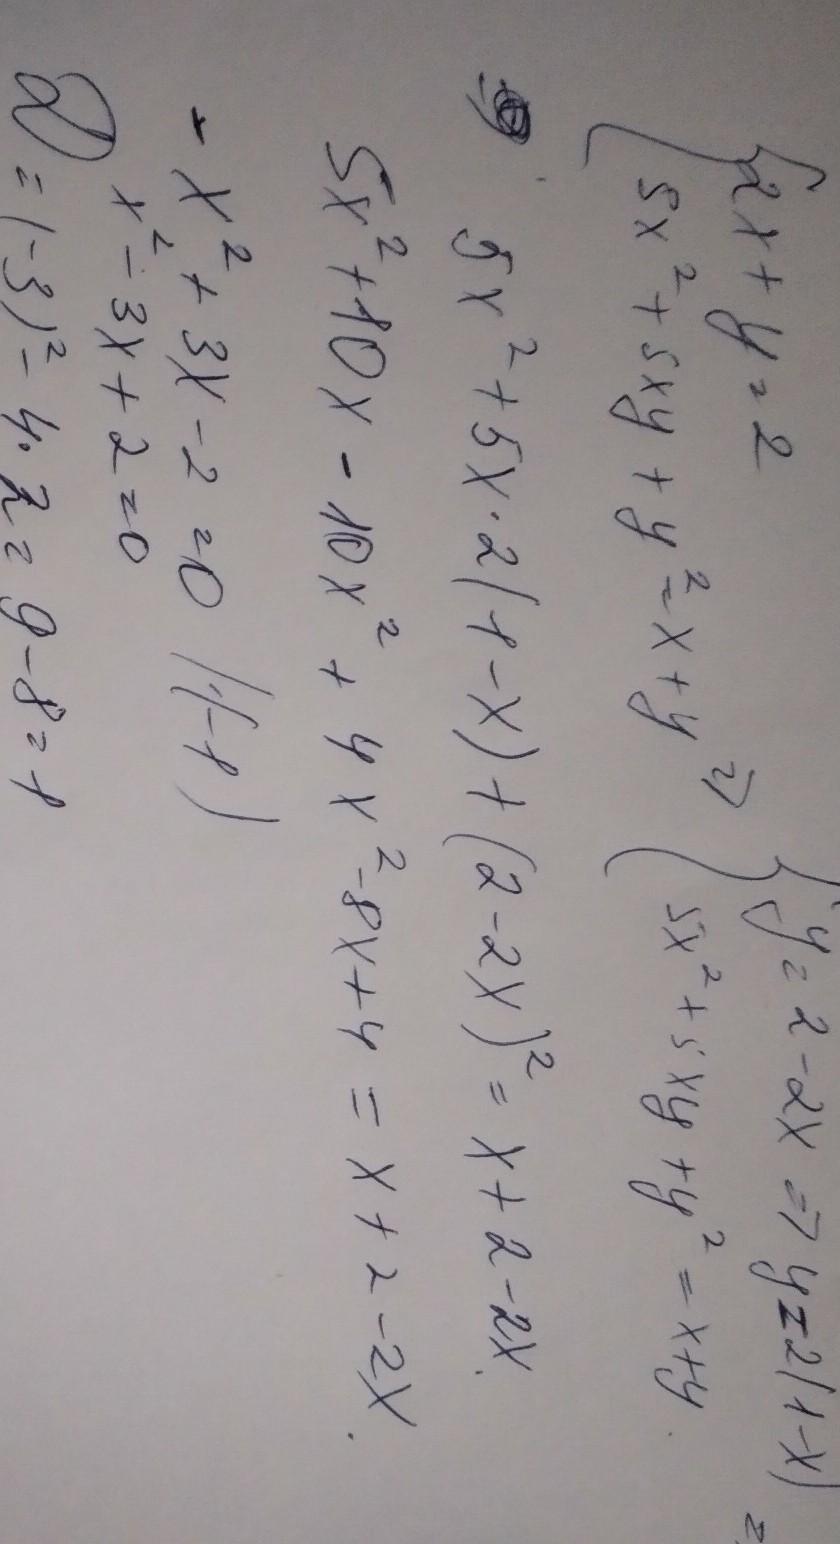 {2x + y = 2
{5x² + 5xy + y² = x + y => {y = 2 - 2x => y = 2(1-x)
{5x² + 5xy + y² = x + y.
5x² + 5x·2(1-x) + (2-2x)² = x + 2 - 2x.
5x² + 10x - 10x² + 4x² - 8x + 4 = x + 2 - 2x.
- x² + 3x - 2 = 0 |:(-1)
x² - 3x + 2 = 0
D = (-3)² - 4·2 = 9 - 8 = 1